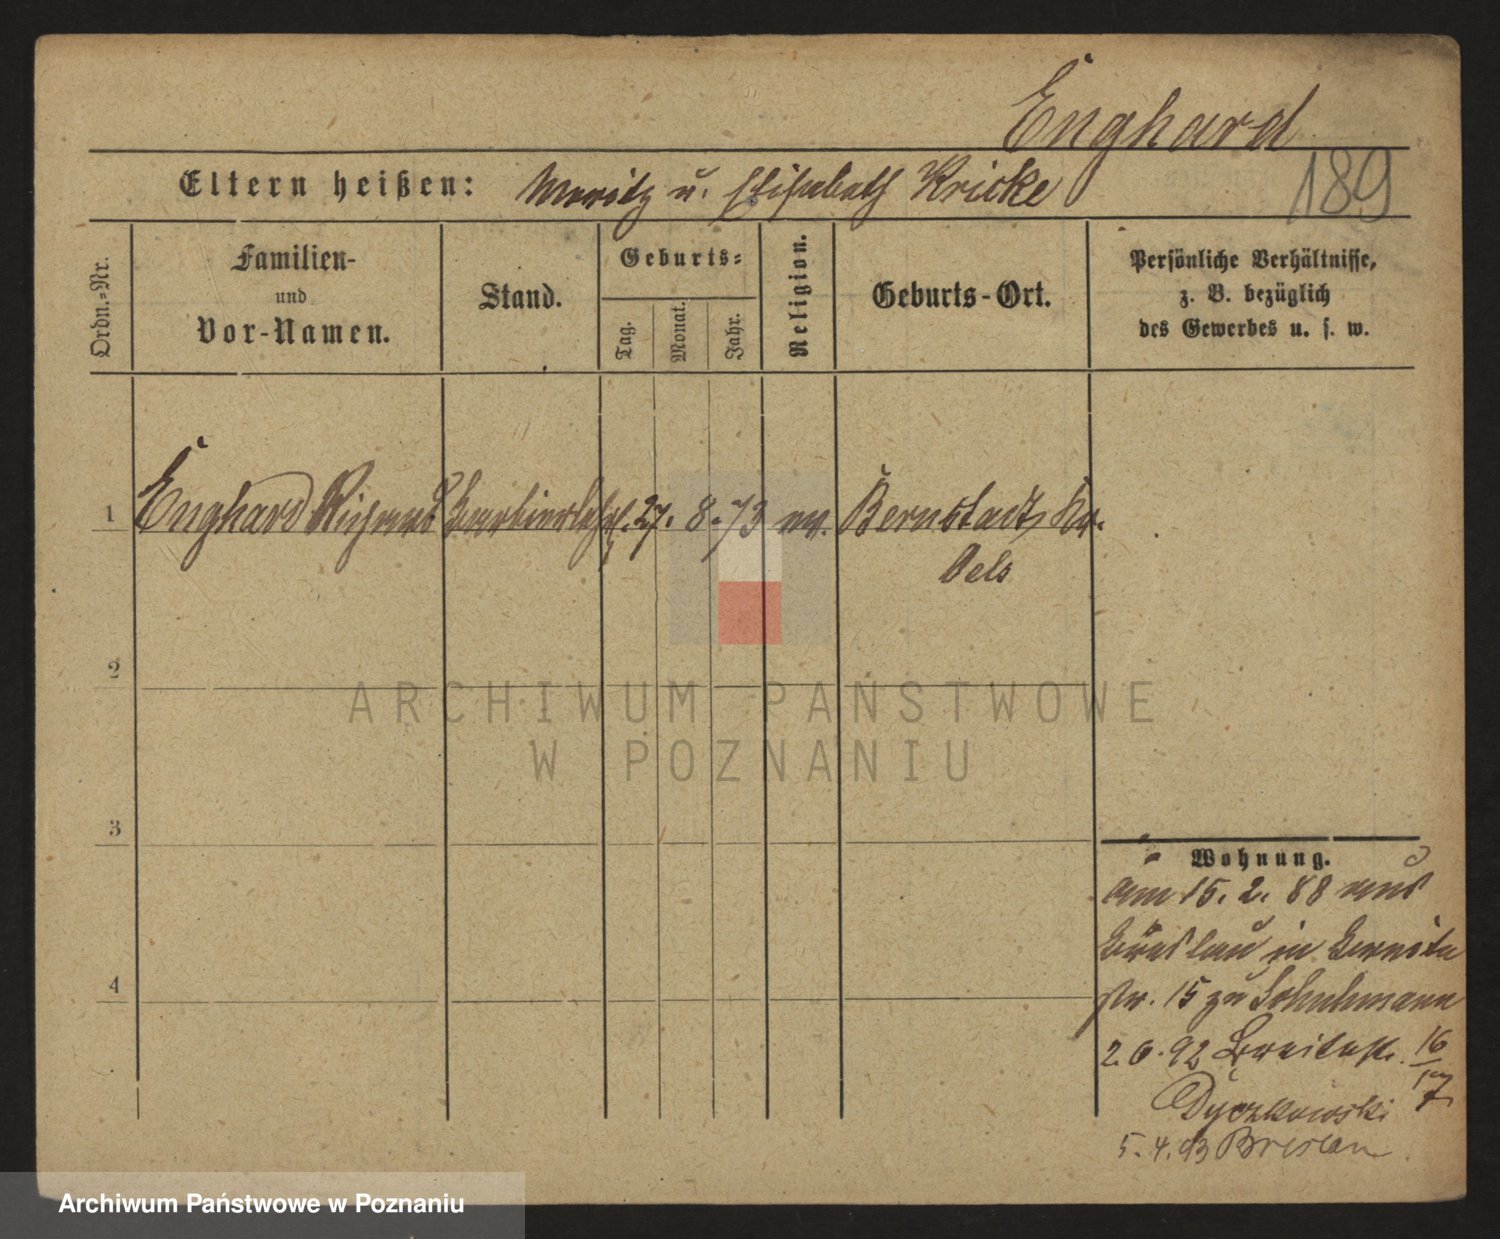 Enghard
189
Eltern heißen: Moritz u. Elisabeth Kricke
Ordn.=Nr.
Familien-
und
Vor-Namen.
Stand.
Geburts=
Tag.
Monat.
Jahr.
Religion.
Geburts-Ort.
Persönliche Verhältnisse,
z. B. bezüglich
des Gewerbes u. s. w.
1 Enghard Richard Barbierlehrl. 27. 8. 73 ev. Bernstadt, Kr.
Oels
2
3
4
Wohnung.
am 15. 2. 88 aus
Breslau in Breite
str. 15 zu Schuhmann
2. 6. 92 Breitestr. 16/17
Dyczkowski
5. 4. 93 Breslau
ARCHIWUM PAŃSTWOWE
W POZNANIU
Archiwum Państwowe w Poznaniu